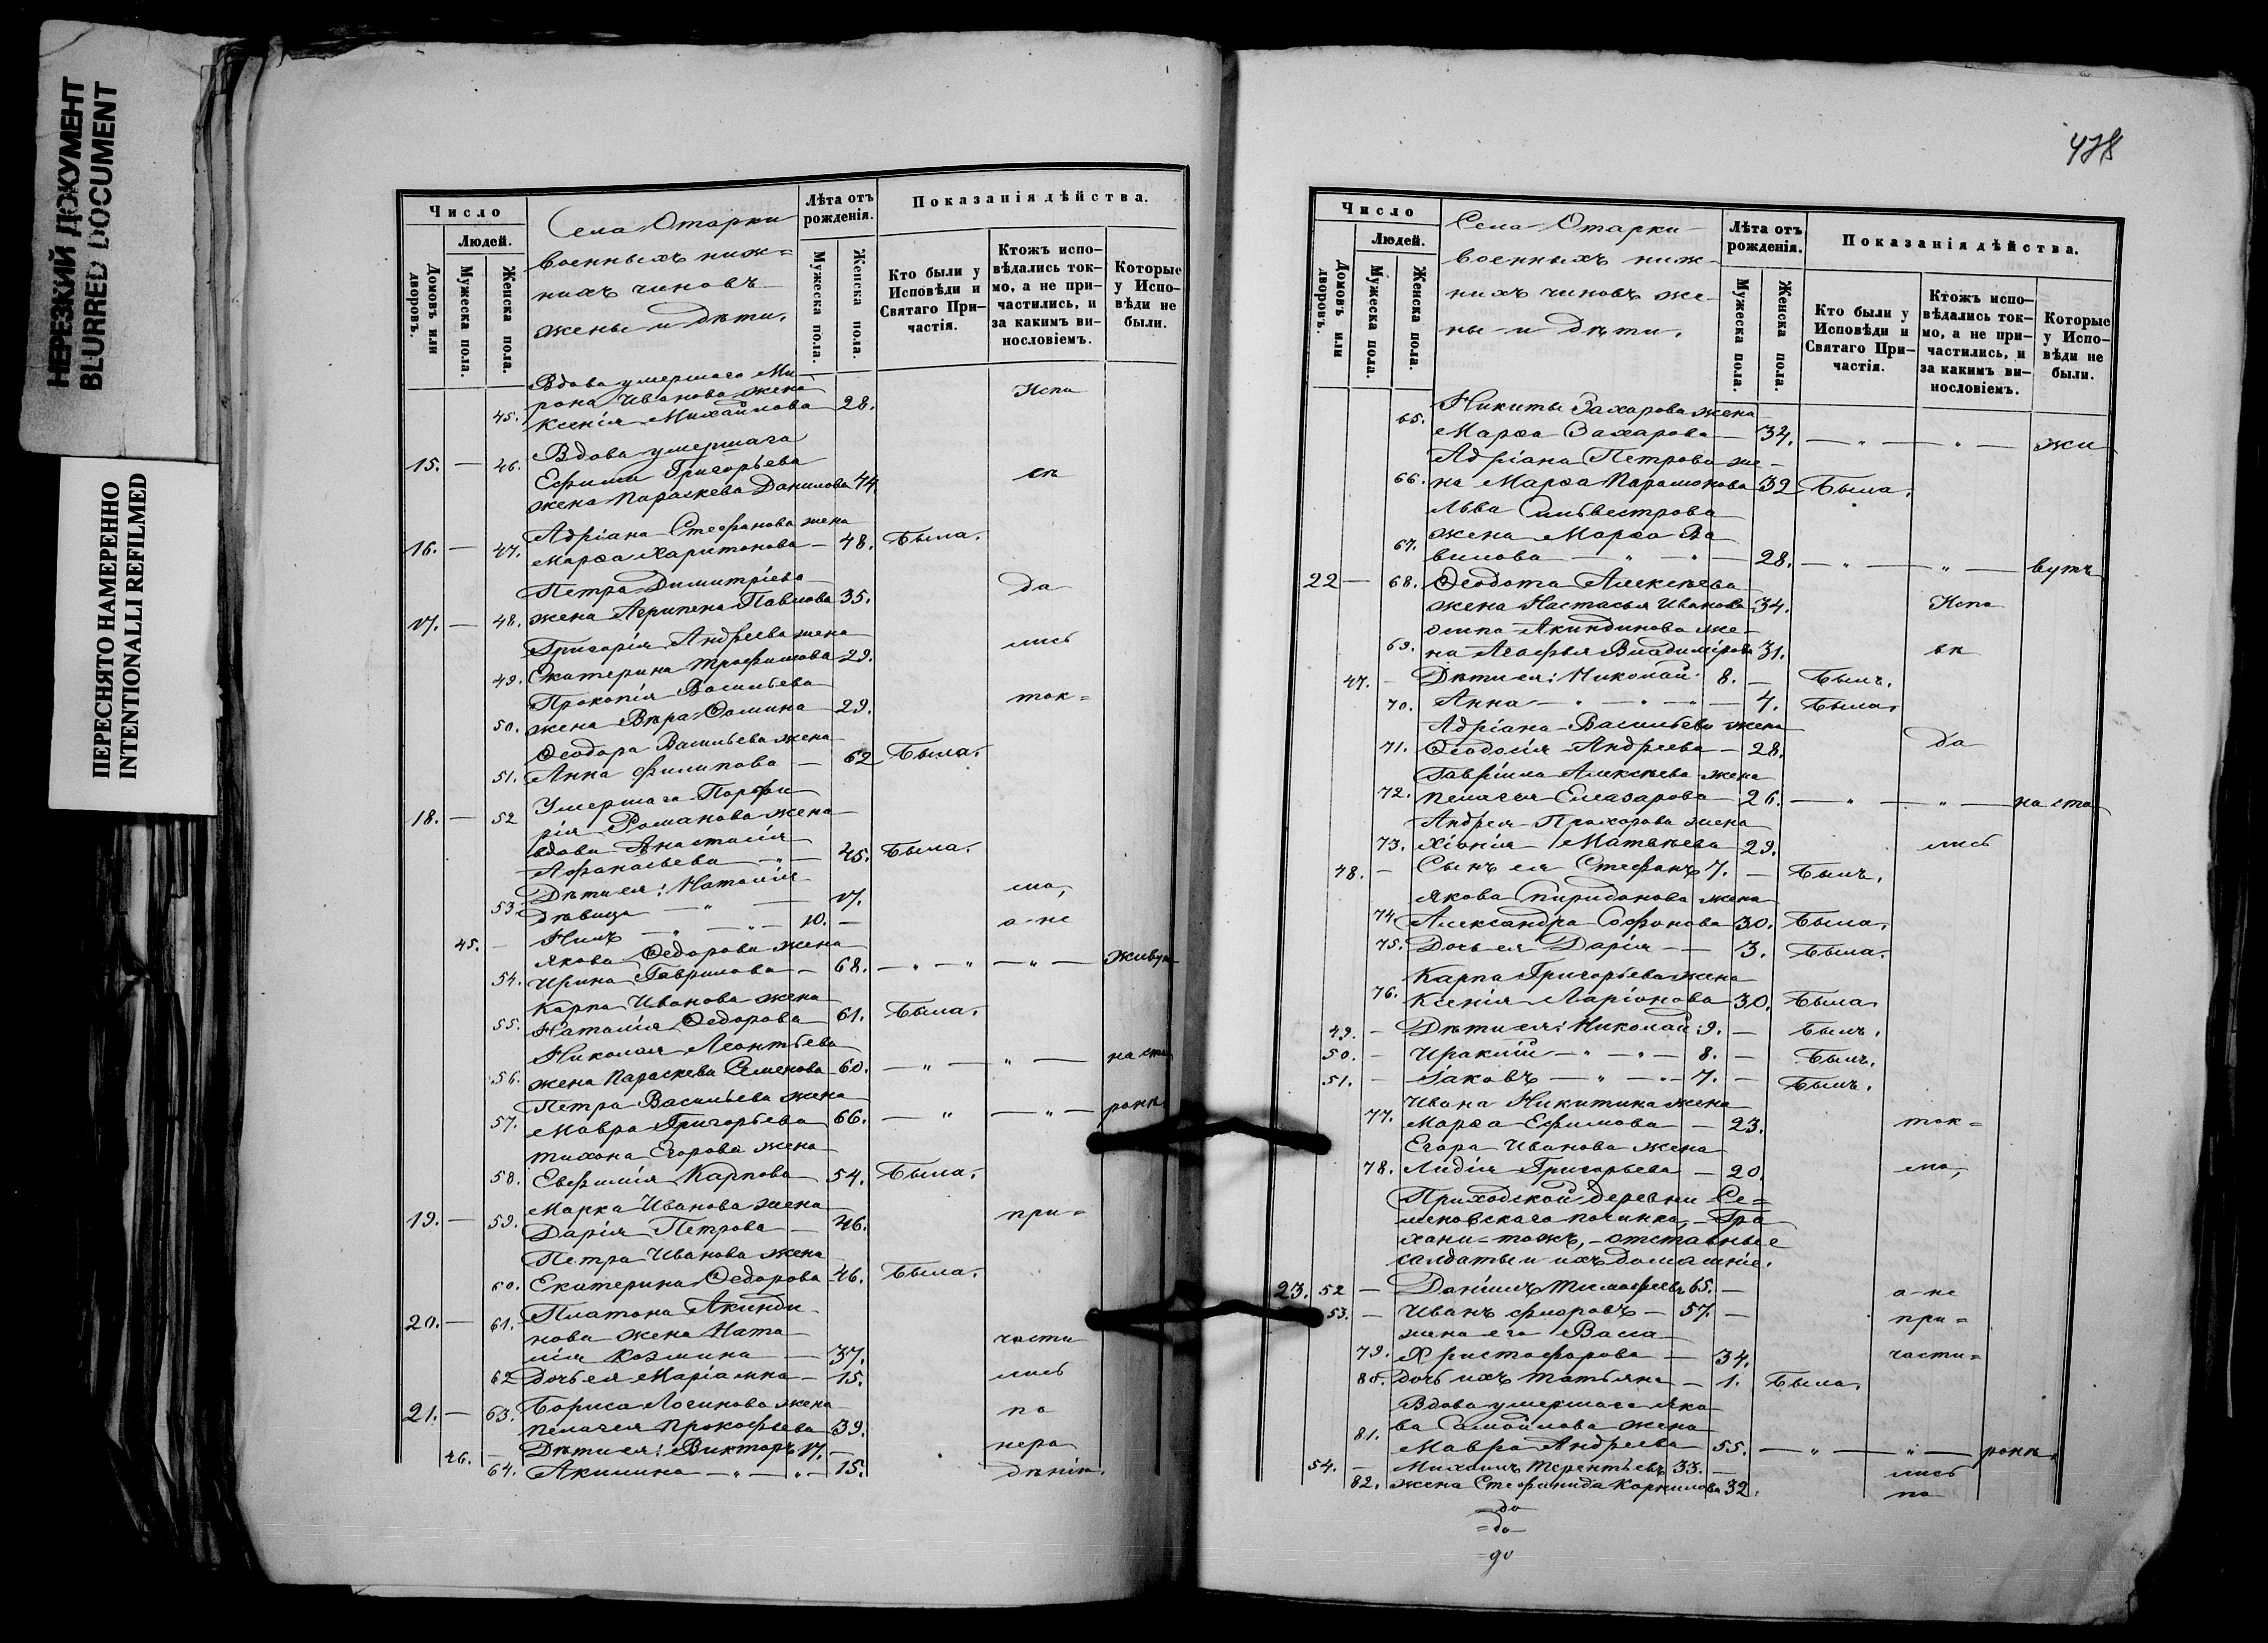 НЕРЕЗКИЙ ДОКУМЕНТ
BLURRED DOCUMENT
ПЕРЕСНЯТО НАМЕРЕННО
INTENTIONALLI REFILMED
Число
Людей.
Домовъ или дворовъ.
Мужеска пола.
Женска пола.
Села Отарки
военныхъ ниж=
нихъ чиновъ
жены и дѣти.
Лѣта отъ рожденія.
Мужеска пола.
Женска пола.
Показанія дѣйства.
Кто были у Исповѣди и Святаго При-частія.
Ктожъ испо-вѣдались ток-мо, а не при-частились, и за какимъ ви-нословіемъ.
Которые у Испо-вѣди не были.
Вдова умершаго Ми-
рона Иванова жена
45. Ксенія Михайлова 28. Испо
15. — 46. Вдова умершаго
Ефима Григорьева
жена Параскева Данилова 44. вѣ
Адріана Стефанова жена
16. — 47. Марѳа Харитонова — 48. Была.
Петра Димитріева
17. — 48. жена Агрипена Павлова 35. да
Григорія Андреева жена
49. Екатерина Трофимова 29. лись
Прокопія Васильева
50. жена Вѣра Ѳомина 29. ток=
Ѳеодора Васильева жена
51. Анна Филипова — 62 Была.
18. — 52 Умершаго Порфи
рія Романова жена
вдова Анастасія
Афанасьева — " — 45. Была.
Дѣти ея: Наталія
53. дѣвица — " — 17. мо,
45. — Нилъ — " — " — 10. — а не
Якова Ѳедорова жена
54. Ирина Гаврилова — 68. — " — " — " — живут
Карпа Иванова жена
55. Наталія Ѳедорова 61. Была.
Николая Леонтьева
56. жена Параскева Семенова 60. — " — " — на сто
Петра Васильева жена
57. Мавра Григорьева 66. — " — " — ронѣ.
Тихона Егорова жена
58. Евфимія Карпова 54. Была.
Марка Иванова жена
19. — 59. Дарія Петрова — 46. при=
Петра Иванова жена
60. Екатерина Ѳедорова 46. Была.
20. — 61. Платона Акинди-
нова жена Ната-
лія Козмина — 37. части
62 Дочь ея Маріамна — 15. лись
21. — 63. Бориса Логинова жена
Пелагея Прокофьева 39. по
46. — Дѣти ея: Викторъ 17. — нера
64. Акилина — " — " — 15. дѣнію.
478
Число
Людей.
Домовъ или дворовъ.
Мужеска пола.
Женска пола.
Села Отарки
военныхъ ниж-
нихъ чиновъ же-
ны и дѣти.
Лѣта отъ рожденія.
Мужеска пола.
Женска пола.
Показанія дѣйства.
Кто были у Исповѣди и Святаго При-частія.
Ктожъ испо-вѣдались ток-мо, а не при-частились, и за какимъ ви-нословіемъ.
Которые у Испо-вѣди не были.
65. Никиты Захарова жена
Марѳа Захарова — 34. — " — " — жи
Адріана Петрова же-
66. на Марѳа Парамонова 32 Была.
Льва Сильвестрова
67. жена Марѳа Ва
вилова — " — " — 28. — " — " — вутъ
22 — 68. Ѳеодота Алексѣева
жена Настасья Иванова 34. Испо
Осипа Акиндинова же-
69. на Агафья Владимірова 31. вѣ
47. — Дѣти ея: Николай 8. — Былъ.
70. Анна — " — " — 4. Была.
Адріана Васильева жена
71. Ѳеодосія Андреева — 28. да
Гавріила Алексѣева жена
72. Пелагея Елеазарова — 26. — " — " — на сто
Андрея Прохорова жена
73. Хіонія Матвѣева 29. лись
48. — Сынъ ея Стефанъ 7. — Былъ.
Якова Спиридонова жена
74 Александра Софонова 30. Была.
75. Дочь ея Дарія — — 3. Была.
Карпа Григорьева жена
76. Ксенія Ларіонова 30. Была.
49. — Дѣти ея: Николай 9. — Былъ.
50. — Ираклій — " — " — 8. — Былъ.
51. — Іаковъ — " — " — 7. — Былъ.
Ивана Никитина жена
77. Марѳа Ефимова — 23. ток=
Егора Иванова жена
78. Лидія Григорьева — 20. мо,
Приходской деревни Се=
меновскаго починка, — Гра
хани=тожъ, — отставные
салдаты и ихъ домашніе.
23. 52 — Даніилъ Тимофеевъ 65. — а не
53. — Иванъ Флоровъ — 57. — при=
жена его Васса
79. Христофорова — 34. части=
80. дочь ихъ Татьяна — 1. Была.
Вдова умершаго Яко
81. ва Самойлова жена
Мавра Андреева 55. — " — " — ронѣ.
54. — Михаилъ Терентьевъ 33. — лись
82. жена Стефанида Корнилова 32. по
до
=до
=до